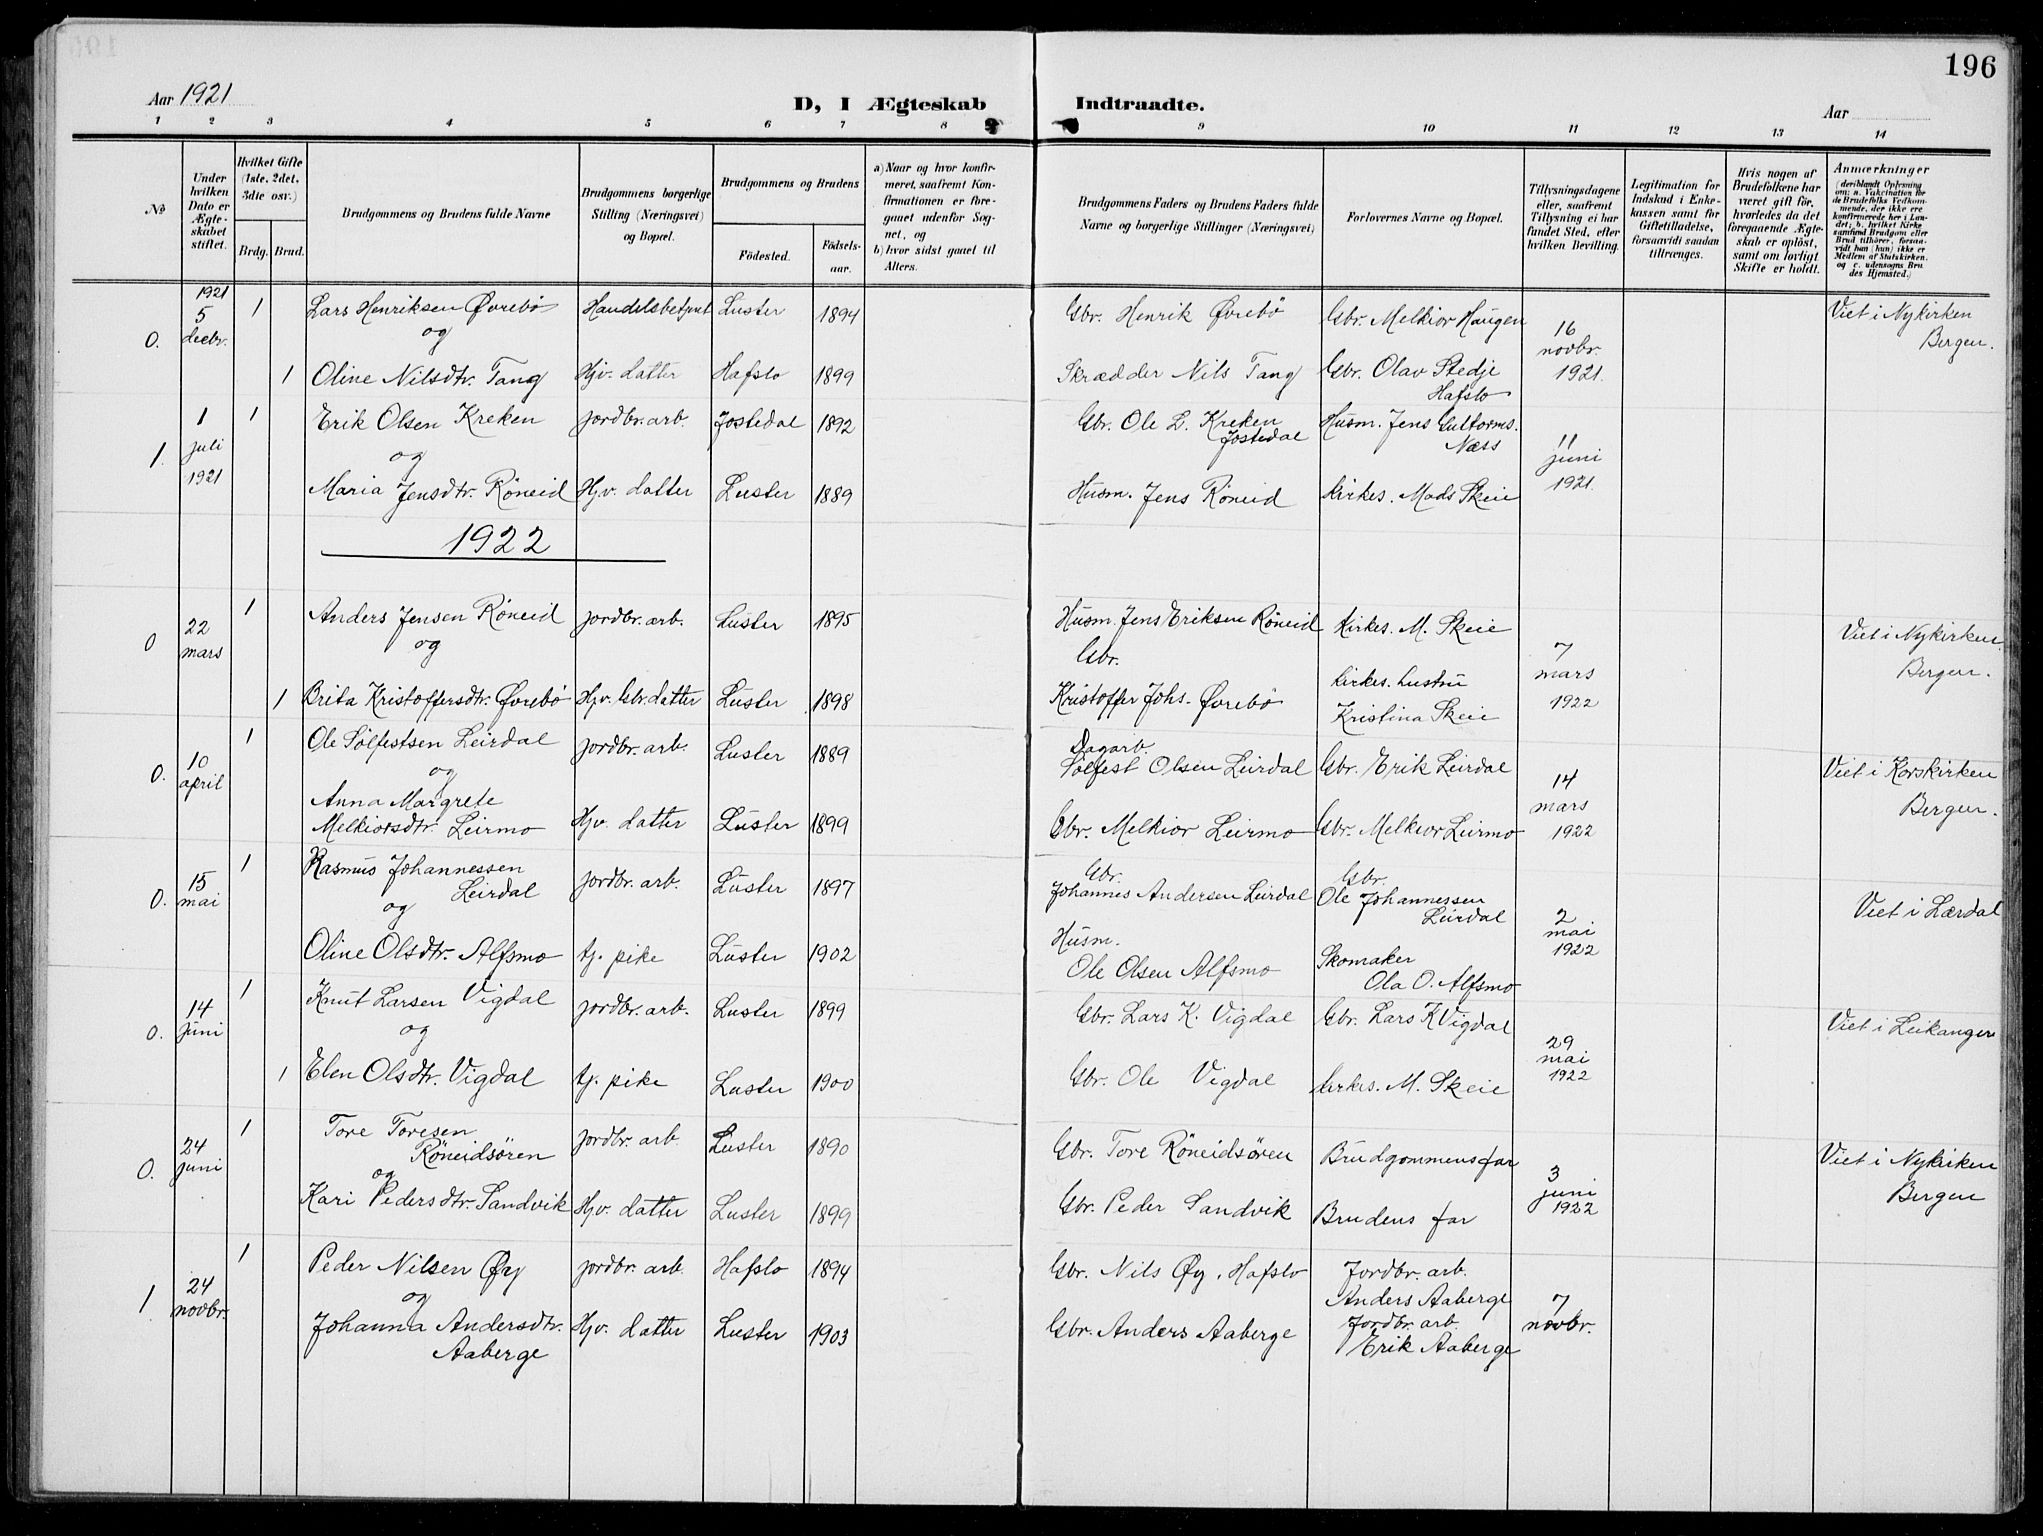 196
Aar 1921
D, I Ægteskab Indtraadte.
Aar
1 2 3 4 5 6 7 8 9 10 11 12 13 14
No
Under hvilken Dato er Ægteskabet stiftet.
Hvilket Gifte (1ste, 2det, 3die osv.)
Brdg. Brud.
Brudgommens og Brudens fulde Navne
Brudgommens borgerlige Stilling (Næringsvei) og Bopæl.
Brudgommens og Brudens
Födested.
Födsels-aar.
a) Naar og hvor konfirmeret, saafremt Konfirmationen er foregaaet udenfor Sognet, og
b) hvor sidst gaaet til Alters.
Brudgommens Faders og Brudens Faders fulde Navne og borgerlige Stillinger (Næringsvei)
Forlovernes Navne og Bopæl.
Tillysningsdagene eller, saafremt Tillysning ei har fundet Sted, efter hvilken Bevilling.
Legitimation for Indskud i Enkekassen samt for Giftetilladelse, forsaavidt saadan tiltrænges.
Hvis nogen af Brudefolkene har været gift för, hvorledes da det foregaaende Ægteskab er oplöst, samt om lovligt Skifte er holdt.
Anmærkninger
(deriblandt Oplysning om: a. Vakcination for de Brudefolks Vedkommende, der ikke ere konfirmerede her i Landet; b. hvilket Kirkesamfund Brudgom eller Brud tilhörer, forsaavidt han (hun) ikke er Medlem af Statskirken, og c. udensogns Brudes Hjemsted.)
0. 1921 5 decbr. 1 Lars Henriksen Øvrebö Handelsbetjent Luster 1894 Gbr. Henrik Øvrebö Gbr. Melkior Haugen 16 novbr. 1921. Viet i Nykirken Bergen.
og
1 Oline Nilsdtr. Tang Hjv. datter Hafslo 1899 Skrædder Nils Tang Gbr. Olav Stedje Hafslo
1. 1 juli 1921 1 Erik Olsen Kreken jordbr. arb. Jostedal 1892 Gbr. Ole L. Kreken Jostedal Husm. Jens Guttorms. Næss 11 juni 1921.
og
Maria Jensdtr. Röneid Hjv. datter Luster 1889 Husm. Jens Röneid Kirkes. Mads Skeie
1922
0 22 mars 1 Anders Jensen Röneid jordbr. arb. Luster 1895 Husm. Jens Eriksen Röneid Kirkes. M. Skeie 7 mars 1922 Viet i Nykirken Bergen.
og
1 Brita Kristoffersdtr. Øvrebö Hjv. Gbr. datter Luster 1898 Gbr. Kristoffer Johs. Øvrebö Kirkes. hustru Kristina Skeie
0. 10 april 1 Ole Sölfestsen Leirdal jordbr. arb. Luster 1889 Dagarb. Sölfest Olsen Leirdal Gbr. Erik Leirdal 14 mars 1922 Viet i Korskirken Bergen.
og
Anna Margrete Melkiorsdtr. Leirmo Hjv. datter Luster 1899 Gbr. Melkior Leirmo Gbr. Melkior Leirmo
0. 15 mai 1 Rasmus Johannessen Leirdal jordbr. arb. Luster 1897 Gbr. Johannes Andersen Leirdal Gbr. Ole Johannessen Leirdal 2 mai 1922 Viet i Lærdal
og
Oline Olsdtr. Alfsmo tj. pike Luster 1902 Husm. Ole Olsen Alfsmo Skomaker Ola O. Alfsmo
0. 14 juni 1 Knut Larsen Vigdal jordbr. arb. Luster 1899 Gbr. Lars K. Vigdal Gbr. Lars K Vigdal 29 mai 1922 Viet i Leikanger
og
1 Elen Olsdtr. Vigdal tj. pike Luster 1900 Gbr. Ole Vigdal Kirkes. M. Skeie
0. 24 juni 1 Tore Toresen Röneidsören jordbr. arb Luster 1890 Gbr. Tore Röneidsören Brudgommens far 3 juni 1922 Viet i Nykirken Bergen
og
Kari Pedersdtr. Sandvik Hjv. datter Luster 1899 Gbr. Peder Sandvik Brudens far
1 24 novbr. 1 Peder Nilsen Øy jordbr. arb. Hafslo 1894 Gbr. Nils Øy, Hafslo Jordbr. arb. Anders Aaberge 7 novbr.
og
Johanna Andersdtr. Aaberge Hjv. datter Luster 1903 Gbr. Anders Aaberge Jordbr. arb. Erik Aaberge